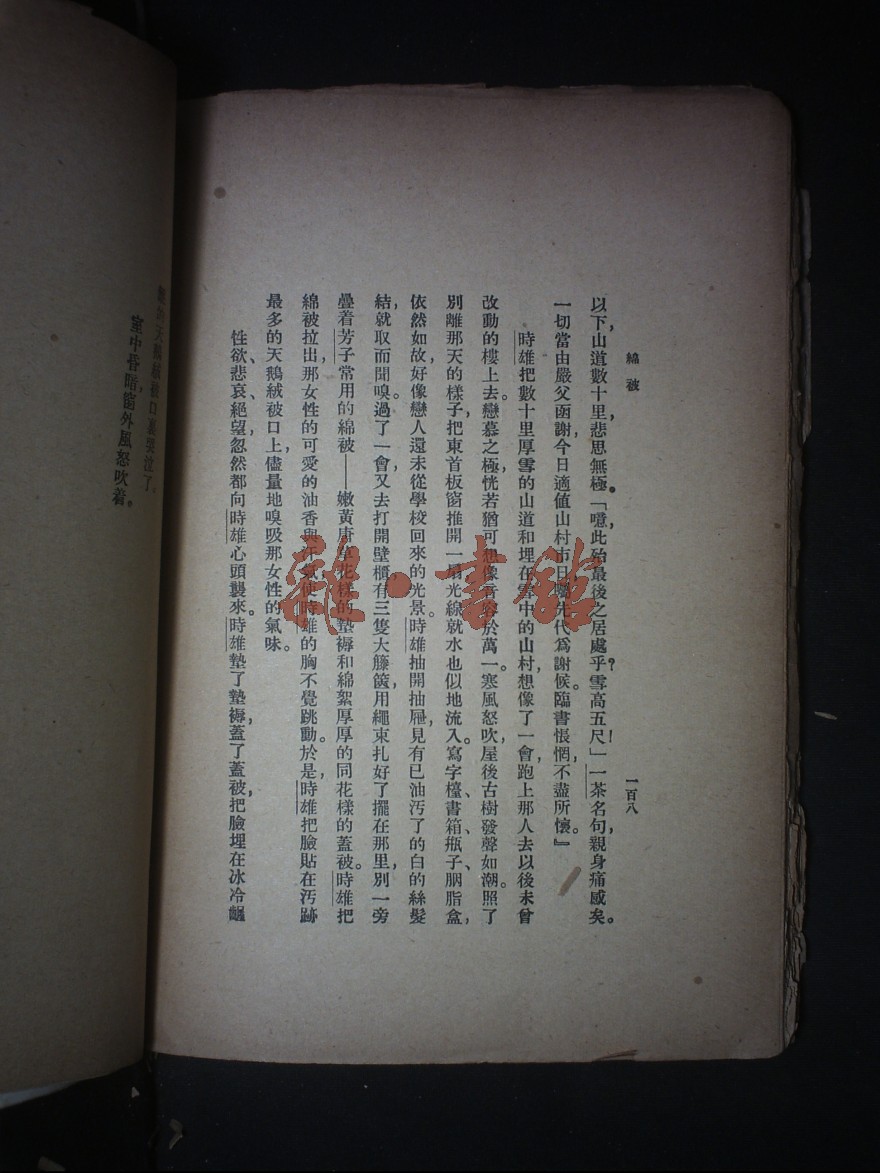 綿被
一百八
以下，山道數十里，悲思無極。「噫，此殆最後之居處乎？雪高五尺！」一茶名句，親身痛感矣。
一切當由嚴父函謝，今日適值山村市日，囑先代爲謝候。臨書悵惘，不盡所懷。』
時雄把數十里厚雪的山道和埋在雪中的山村，想像了一會，跑上那人去以後未曾
改動的樓上去。戀慕之極，恍若猶可想像音容於萬一。寒風怒吹，屋後古樹發聲如潮。照了
別離那天的樣子，把東首板窗推開一扇，光線就水也似地流入。寫字檯、書箱、瓶子、胭脂盒，
依然如故，好像戀人還未從學校回來的光景。時雄抽開抽屜，見有已油汚了的白的絲髮
結，就取而聞嗅。過了一會，又去打開壁櫃，有三隻大籐篋，用繩束扎好了擺在那里，別一旁
疊着芳子常用的綿被——嫩黃唐草花樣的墊褥和綿絮厚厚的同花樣的蓋被。時雄把
綿被拉出，那女性的可愛的油香與汗氣，使時雄的胸不覺跳動。於是，時雄把臉貼在汚跡
最多的天鵝絨被口上，儘量地嗅吸那女性的氣味。
性欲、悲哀、絕望，忽然都向時雄心頭襲來。時雄墊了墊褥，蓋了蓋被，把臉埋在冰冷齷
的天鵝絨被口裏哭泣了。
室中昏暗，窗外風怒吹着。
雜·書館